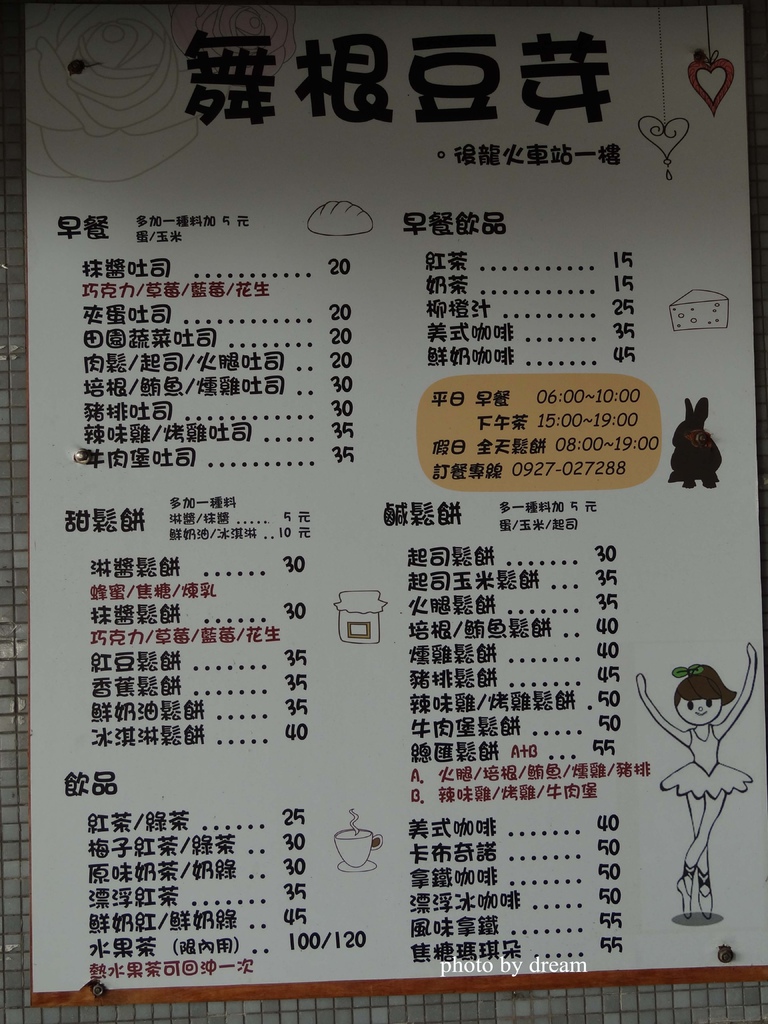 舞根豆芽
。後龍火車站一樓
早餐 多加一種料加 5 元
蛋/玉米
抹醬吐司 ............ 20
巧克力/草莓/藍莓/花生
夾蛋吐司 ............ 20
田園蔬菜吐司 ........ 20
肉鬆/起司/火腿吐司 .. 20
培根/鮪魚/燻雞吐司 .. 30
豬排吐司 ............ 30
辣味雞/烤雞吐司 ..... 35
牛肉堡吐司 .......... 35
早餐飲品
紅茶 ........... 15
奶茶 ........... 15
柳橙汁 ......... 25
美式咖啡 ....... 35
鮮奶咖啡 ....... 45
平日 早餐 06:00~10:00
下午茶 15:00~19:00
假日 全天鬆餅 08:00~19:00
訂餐專線 0927-027288
甜鬆餅 多加一種料
淋醬/抹醬 ..... 5 元
鮮奶油/冰淇淋 .. 10 元
淋醬鬆餅 ...... 30
蜂蜜/焦糖/煉乳
抹醬鬆餅 ...... 30
巧克力/草莓/藍莓/花生
紅豆鬆餅 ....... 35
香蕉鬆餅 ....... 35
鮮奶油鬆餅 ..... 35
冰淇淋鬆餅 ..... 40
鹹鬆餅 多一種料加 5 元
蛋/玉米/起司
起司鬆餅 ....... 30
起司玉米鬆餅 ... 35
火腿鬆餅 ....... 35
培根/鮪魚鬆餅 .. 40
燻雞鬆餅 ....... 40
豬排鬆餅 ....... 45
辣味雞/烤雞鬆餅 . 50
牛肉堡鬆餅 ..... 50
總匯鬆餅 A+B ... 55
A. 火腿/培根/鮪魚/燻雞/豬排
B. 辣味雞/烤雞/牛肉堡
飲品
紅茶/綠茶 ...... 25
梅子紅茶/綠茶 .. 30
原味奶茶/奶綠 .. 30
漂浮紅茶 ....... 35
鮮奶紅/鮮奶綠 .. 45
水果茶 (限內用) .. 100/120
熱水果茶可回沖一次
美式咖啡 ....... 40
卡布奇諾 ....... 50
拿鐵咖啡 ....... 50
漂浮冰咖啡 ..... 50
風味拿鐵 ....... 55
焦糖瑪琪朵 ..... 55
photo by dream